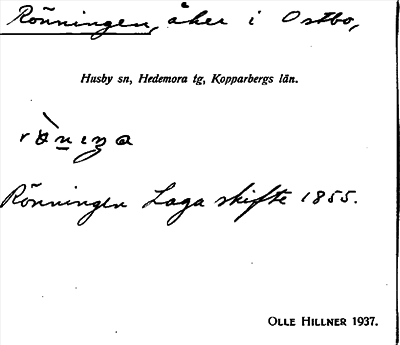 Rönningen, åker i Ostbo,
Husby sn, Hedemora tg, Kopparbergs län.
Rönningen Laga skifte 1855.
OLLE HILLNER 1937.